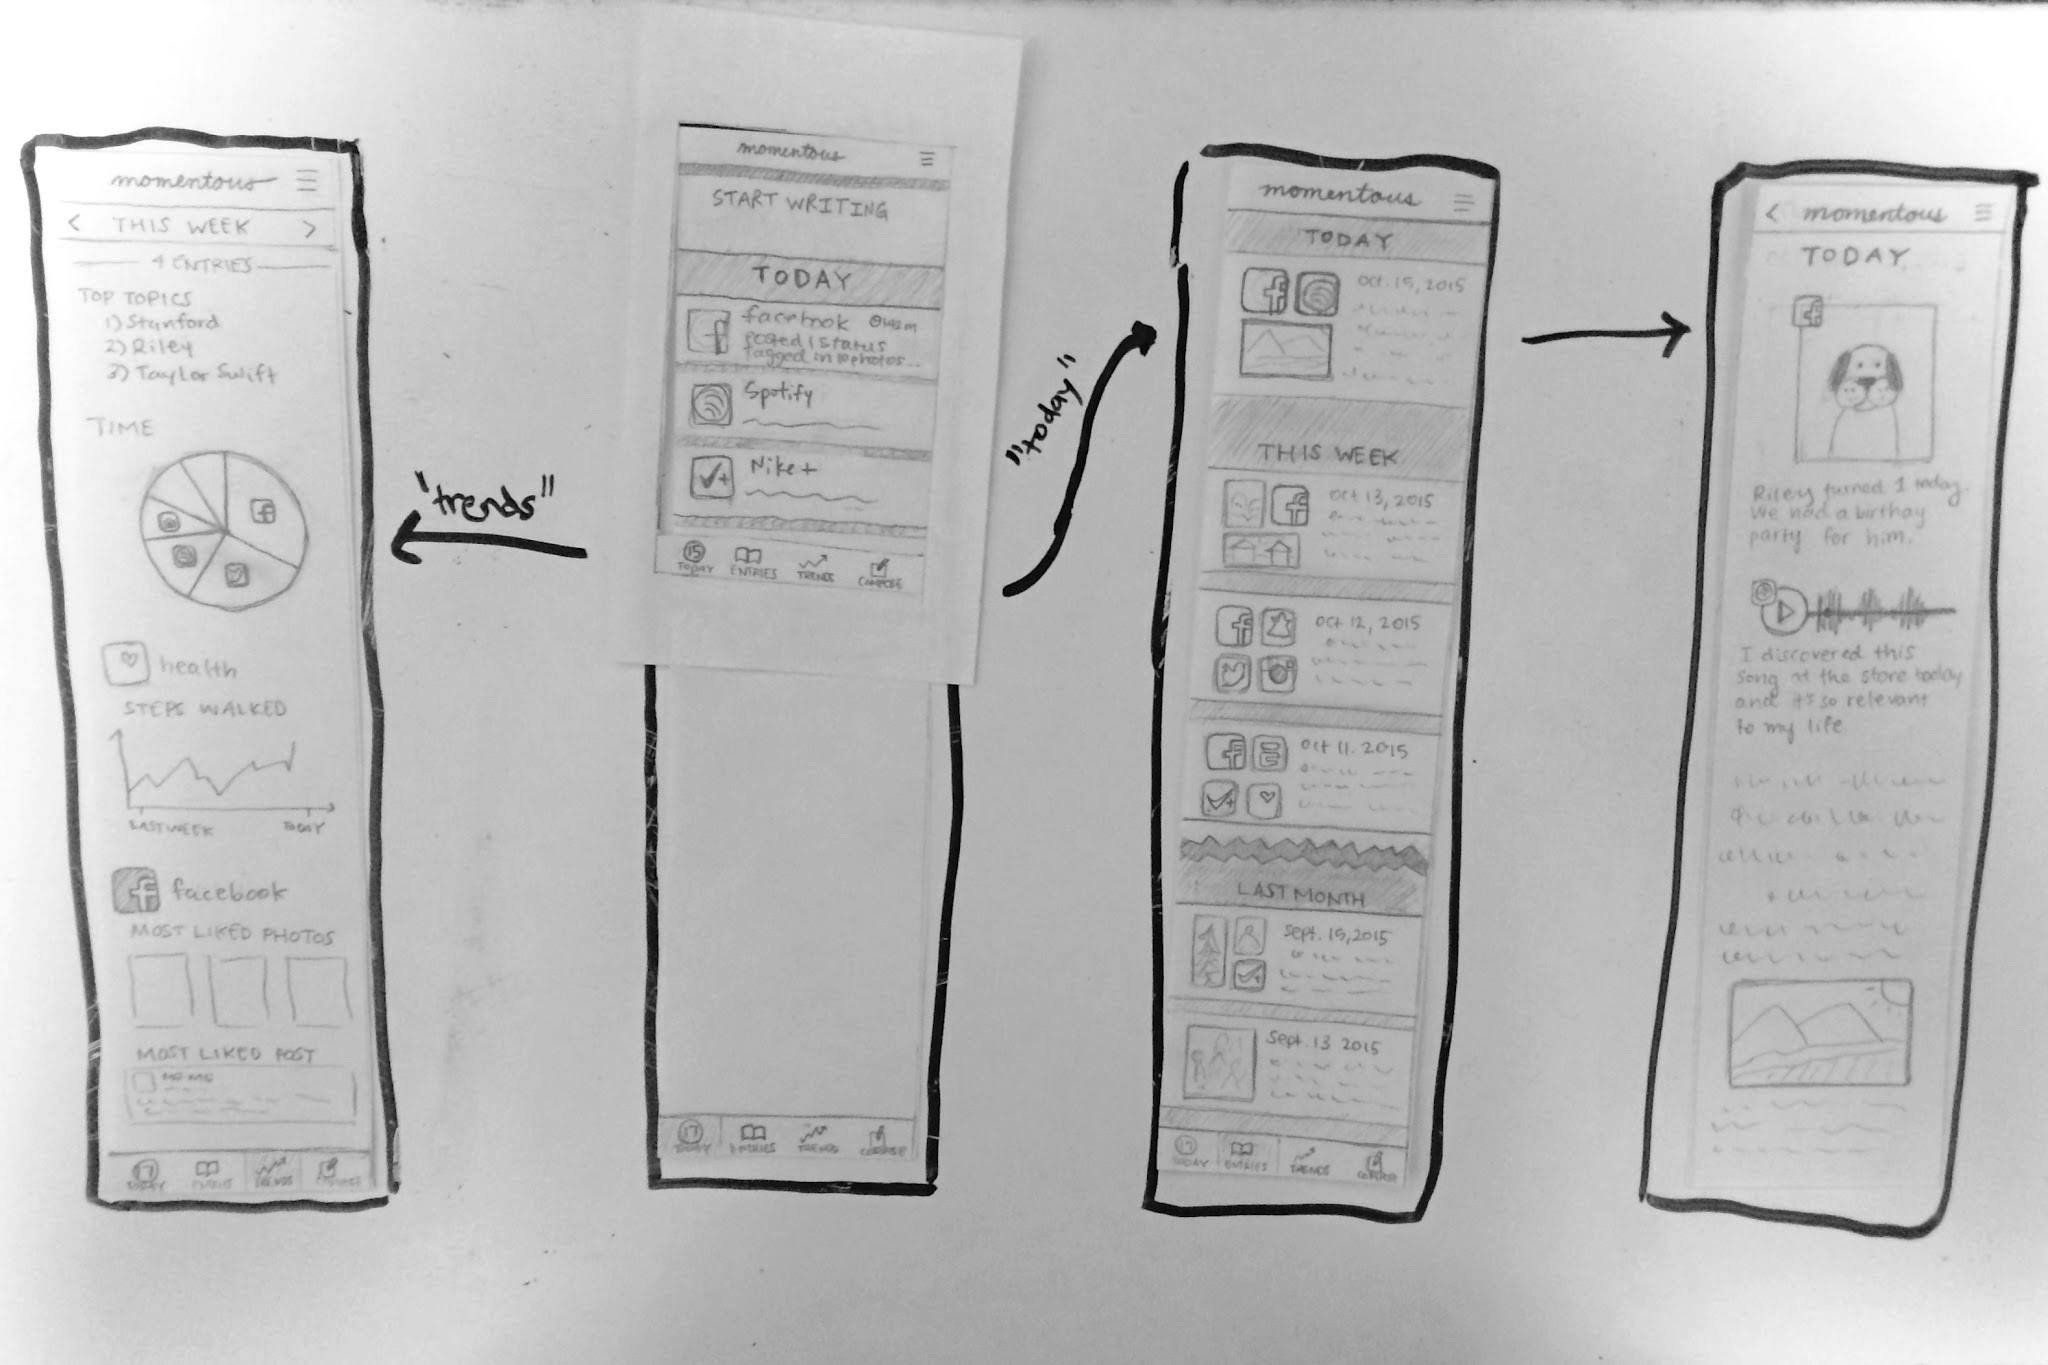 momentous
THIS WEEK
4 ENTRIES
TOP TOPICS
1) Stanford
2) Riley
3) Taylor Swift
TIME
health
STEPS WALKED
LAST WEEK TODAY
facebook
MOST LIKED PHOTOS
MOST LIKED POST
17
TODAY ENTRIES TRENDS COMPOSE
"trends"
momentous
START WRITING
TODAY
facebook
posted 1 status
tagged in 10 photos...
Spotify
Nike+
15
TODAY ENTRIES TRENDS COMPOSE
17
TODAY ENTRIES TRENDS COMPOSE
"today"
momentous
TODAY
Oct. 15, 2015
THIS WEEK
Oct 13, 2015
Oct 12, 2015
Oct 11. 2015
LAST MONTH
Sept. 15, 2015
Sept. 13 2015
17
TODAY ENTRIES TRENDS COMPOSE
momentous
TODAY
Riley turned 1 today.
We had a birthay
party for him.
I discovered this
song at the store today
and it's so relevant
to my life